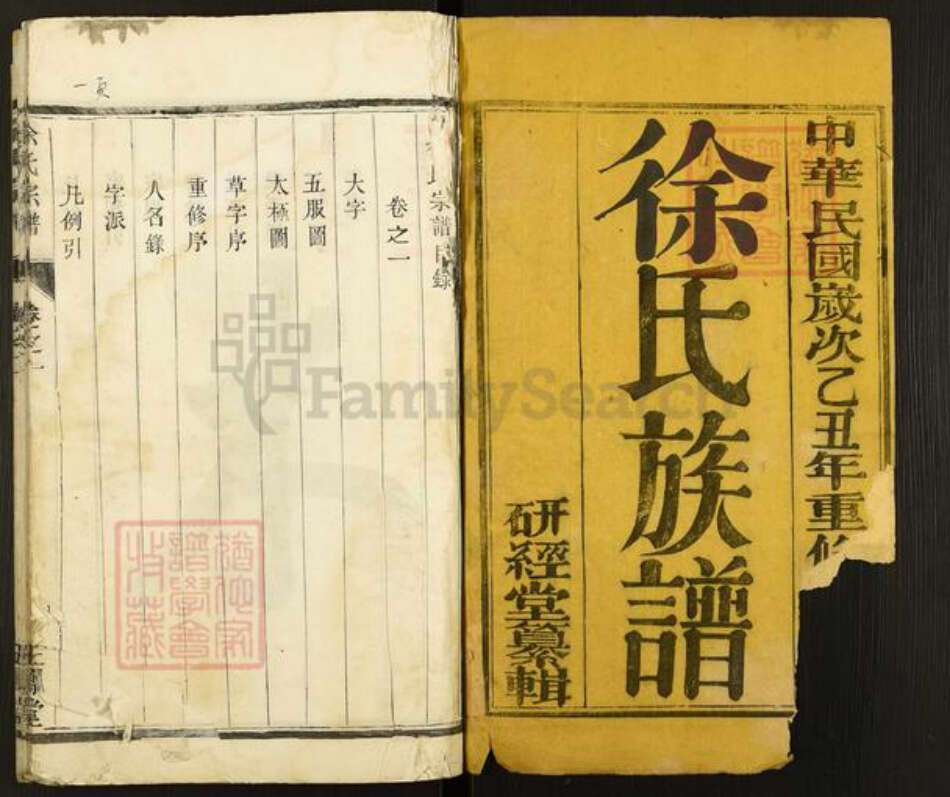 中華民國歲次乙丑年重修
徐氏族譜
研經堂纂輯
氏宗譜目錄
卷之一
大字
五服圖
太極圖
草字序
重修序
人名錄
字派
凡例引
徐氏宗譜
卷之一
一页
猶他家譜學會收藏
FamilySearch